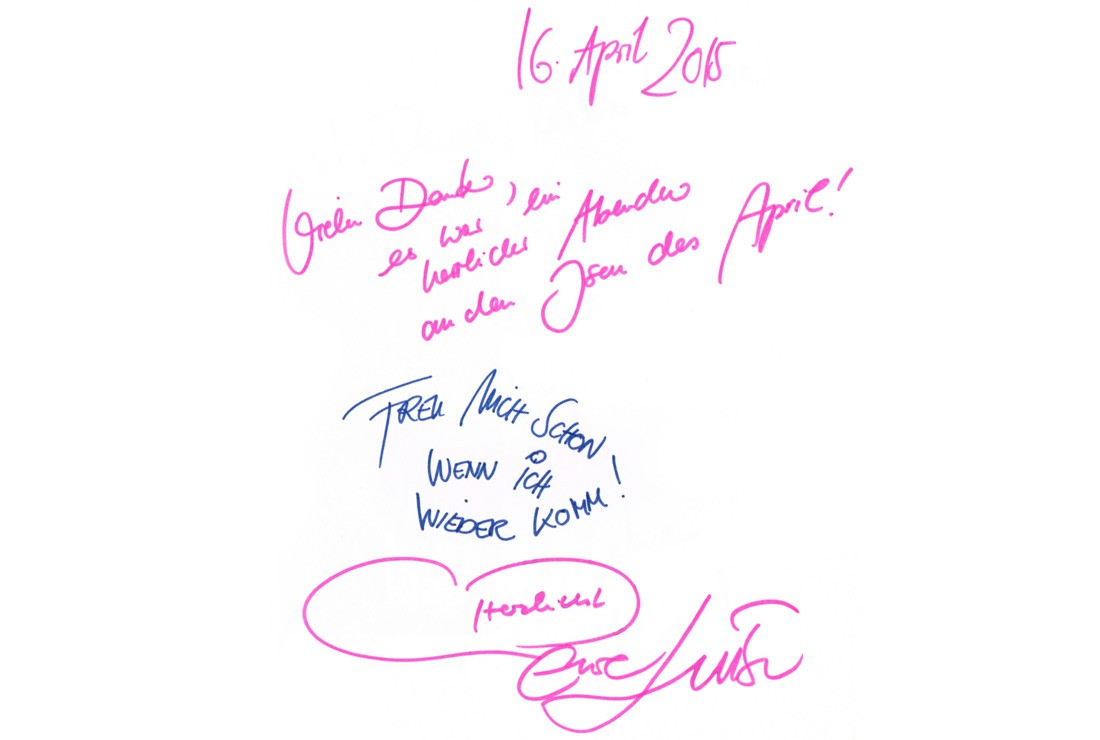 16. April 2015
Vielen Dank,
es war, ein
herrlicher Abend
an den Isen des April!
FREU MICH SCHON
WENN ICH
WIEDER KOMM!
Herzlichst